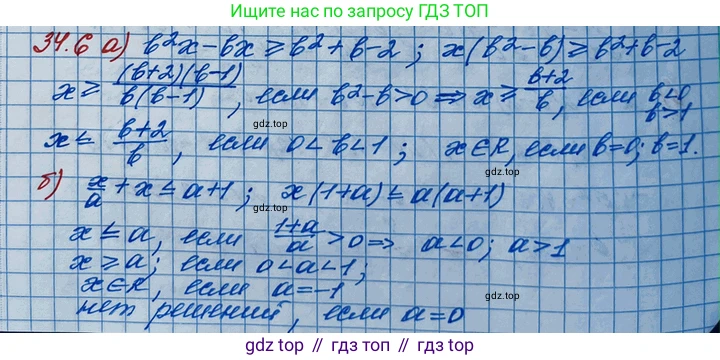 Ищите нас по запросу ГДЗ ТОП
34.6 а) b²x-bx ≥ b²+b-2; x(b²-b) ≥ b²+b-2
x ≥ (b+2)(b-1)/b(b-1), если b²-b>0 ⇒ x ≥ b+2/b, если b<0 b>1
gdz.top
x ≤ b+2/b, если 0<b<1; x∈R, если b=0; b=1.
б) x/a + x ≤ a+1; x(1+a) ≤ a(a+1)
x ≤ a, если 1+a/a >0 ⇒ a<0; a>1
x ≥ a; если 0<a<1;
x∈R, если a=-1
нет решений, если a=0
gdz.top // гдз.топ // gdz.top // гдз.топ